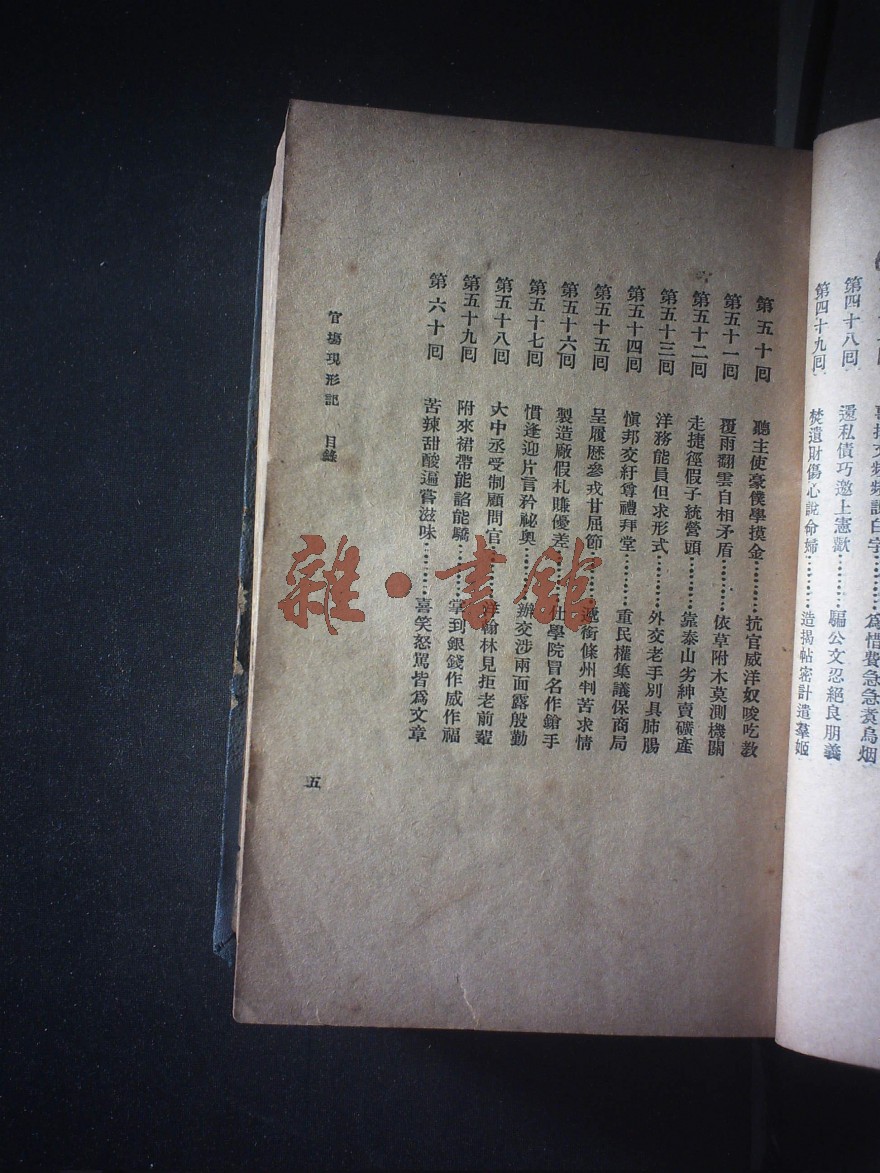 第四十八回　還私債巧邀上憲歡………騙公文忍絕良朋義
第四十九回　焚遺財傷心說命婦………造揭帖密計遣羣姬
第五十回　聽主使豪僕學摸金………抗官威洋奴唆吃教
第五十一回　覆雨翻雲自相矛盾………依草附木莫測機關
第五十二回　走捷徑假子統營頭………靠泰山劣紳賣礦產
第五十三回　洋務能員但求形式………外交老手別具肺腸
第五十四回　愼邦交紆尊禮拜堂………重民權集議保商局
第五十五回　呈履歷參戎甘屈節………遞銜條州判苦求情
第五十六回　製造廠假札賺優差………仕學院冒名作鎗手
第五十七回　慣逢迎片言矜祕奧………辦交涉兩面露殷勤
第五十八回　大中丞受制顧問官………洋翰林見拒老前輩
第五十九回　附來裙帶能諂能驕………掌到銀錢作威作福
第六十回　苦辣甜酸遍嘗滋味………喜笑怒罵皆爲文章
官場現形記　目錄
五
雜·書館